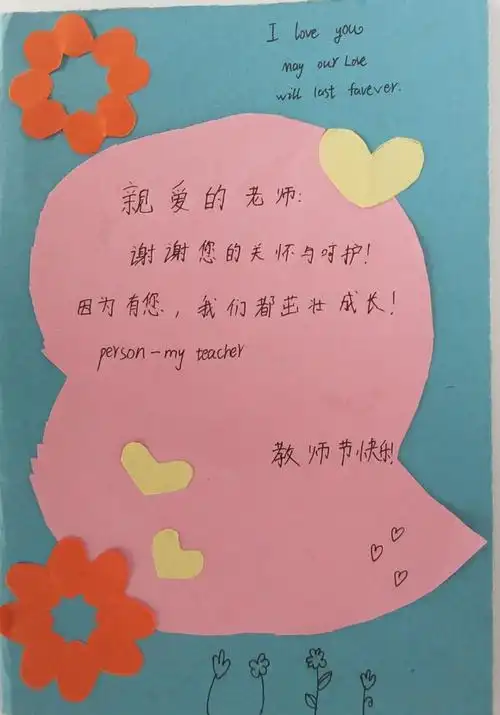 I love you
may our love
will last faver.
亲爱的老师:
谢谢您的关怀与呵护!
因为有您，我们都茁壮成长!
person-my teacher
教师节快乐!